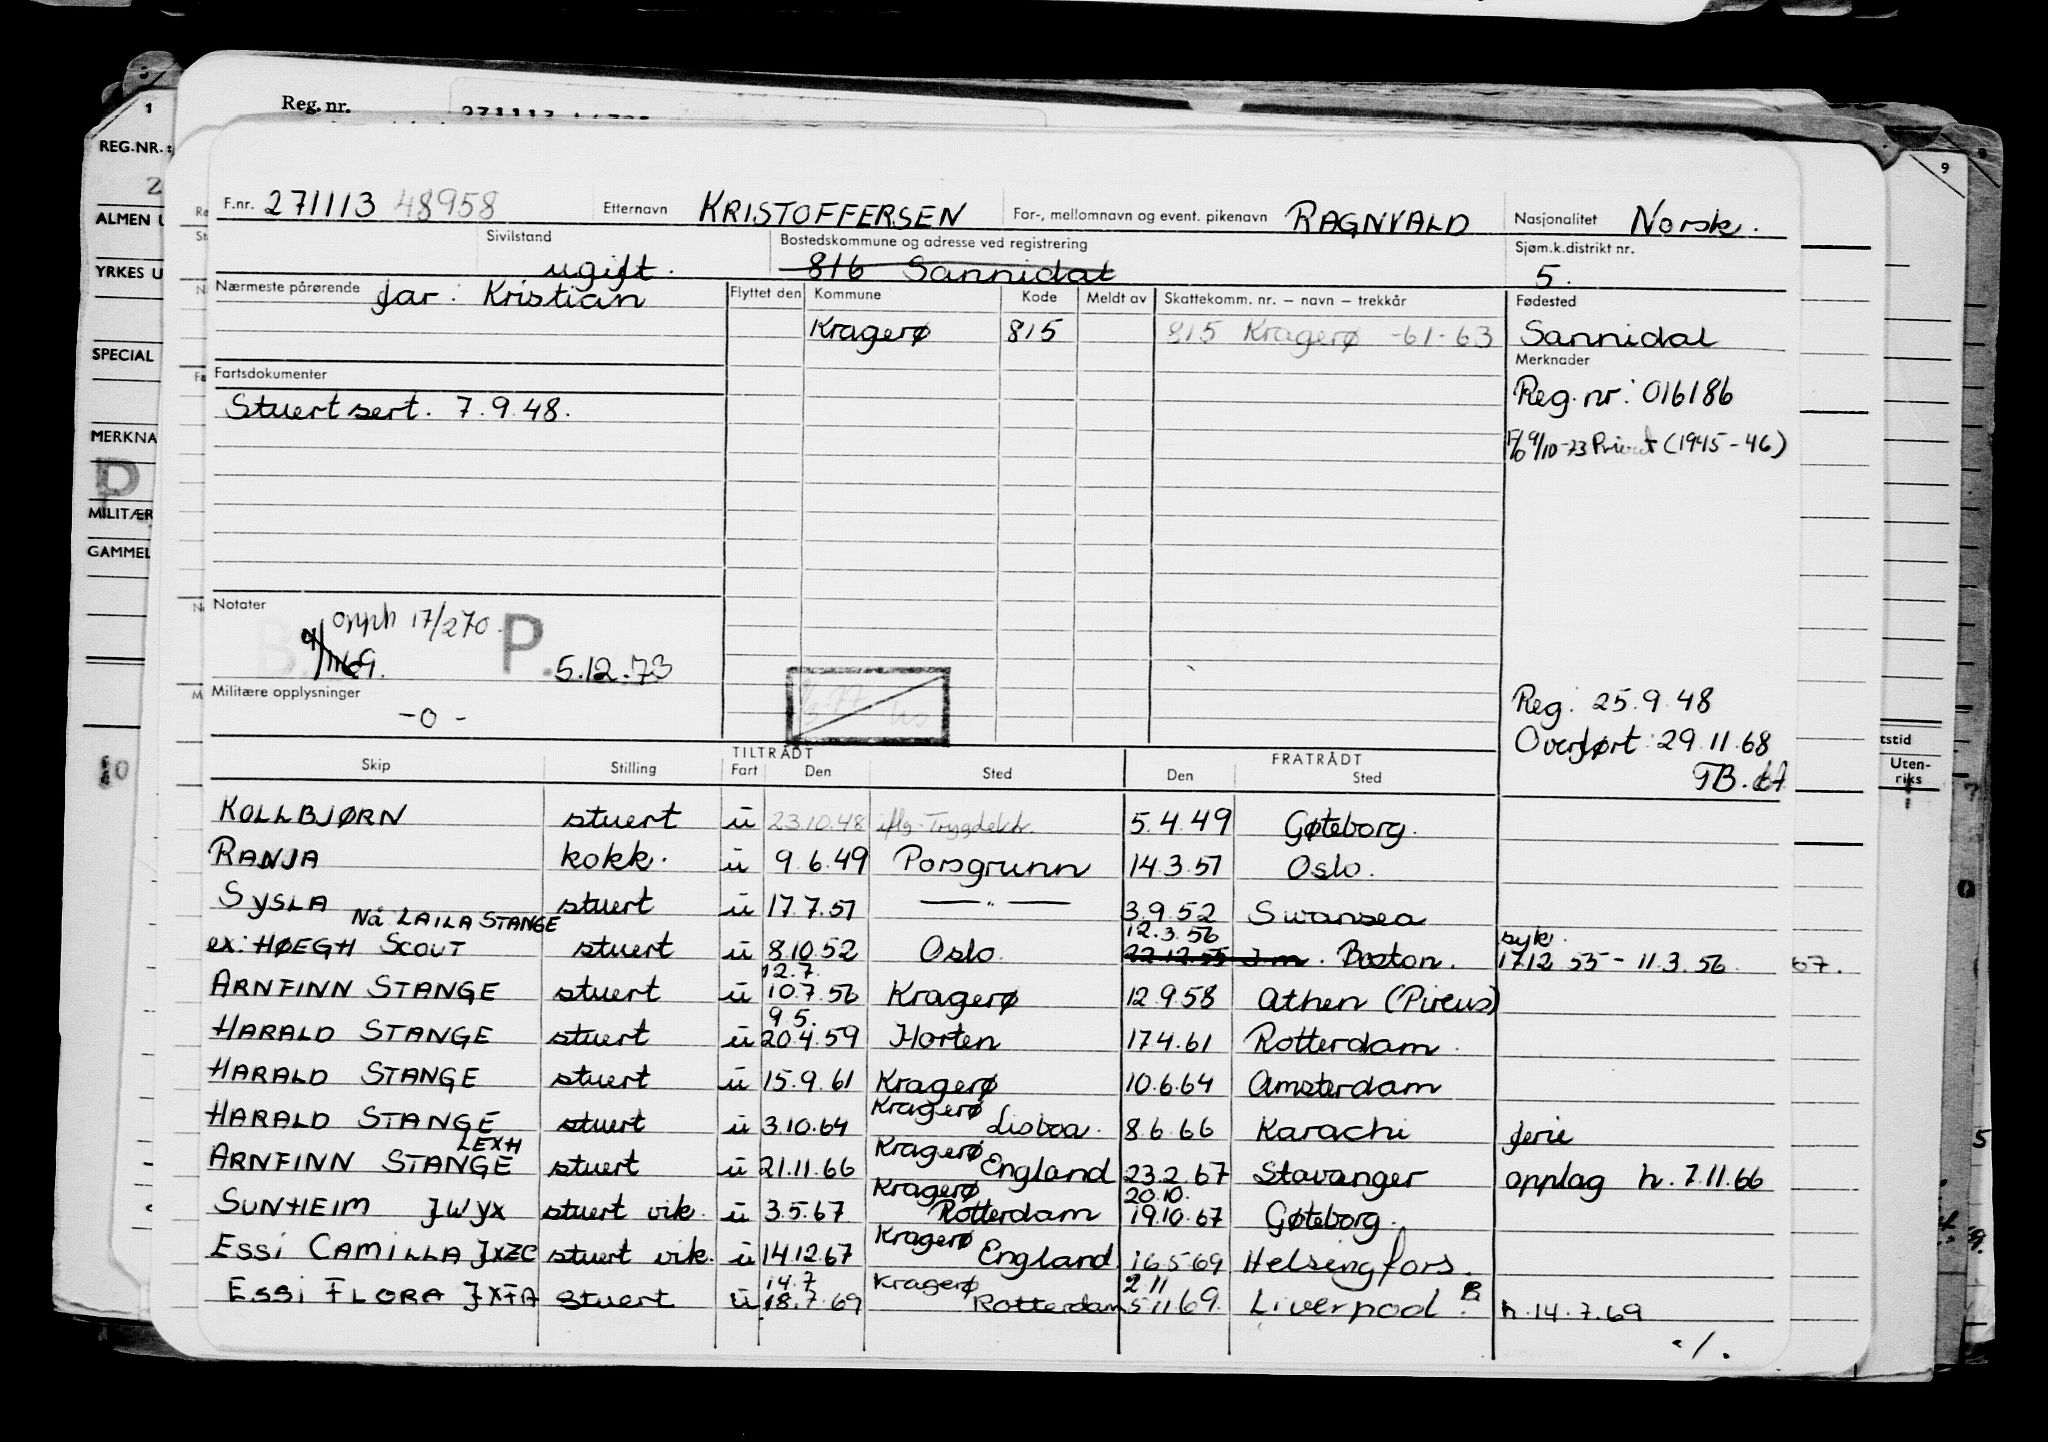 Reg. nr.
REG.NR.:
ALMEN U
YRKES U
SPECIAL
MERKNA
P
MILITÆR
GAMMEL
F.nr. 271113 48958 Etternavn KRISTOFFERSEN For-, mellomnavn og event. pikenavn RAGNVALD Nasjonalitet Norsk.
Sivilstand ugift. Bostedskommune og adresse ved registrering 816 Sannidal Sjøm.k.distrikt nr. 5.
Nærmeste pårørende far: Kristian Flyttet den Kommune Kode Meldt av Skattekomm. nr. – navn – trekkår Fødested
Kragerø 815 815 Kragerø -61-63 Sannidal
Merknader
Fartsdokumenter Reg. nr: 016186
Stuert sert. 7.9.48.
9/10-73 Privat (1945-46)
Notater
opph 17/2 70. P. 5.12.73
Militære opplysninger
-0-
Reg: 25.9.48
Overført: 29.11.68
TB.
TILTRÅDT FRATRÅDT
Skip Stilling Fart Den Sted Den Sted
KOLLBJØRN stuert ū 23.10.48 iflg. Trygdekt. 5.4.49 Gøteborg.
RANJA kokk. ū 9.6.49 Porsgrunn 14.3.51 Oslo.
SYSLA stuert ū 17.7.51 —"— 3.9.52 Swansea
Nå LAILA STANGE 12.3.56 syk.
ex: HØEGH SCOUT stuert ū 8.10.52 Oslo 22.12.55 J.m. Boston. 17.12 55 – 11.3.56 67.
12.7.
ARNFINN STANGE stuert ū 10.7.56 Kragerø 12.9.58 Athen (Pireus)
9.5.
HARALD STANGE stuert ū 20.4.59 Horten 17.4.61 Rotterdam.
HARALD STANGE stuert ū 15.9.61 Kragerø 10.6.64 Amsterdam
HARALD STANGE stuert ū 3.10.64 Kragerø Lisboa. 8.6.66 Karachi ferie
LEXH
ARNFINN STANGE stuert ū 21.11.66 Kragerø England 23.2.67 Stavanger opplag h. 7.11.66
20.10.
SUNHEIM JWYX stuert vik. ū 3.5.67 Kragerø Rotterdam 19.10.67 Gøteborg.
ESSI CAMILLA JXZC stuert vik. ū 14.12.67 Kragerø England 16.5.69 Helsingfors.
14.7 2.11
ESSI FLORA JXFA stuert ū 18.7.69 Kragerø Rotterdam 5.11.69. Liverpool. h. 14.7.69
./.
Uten-
riks